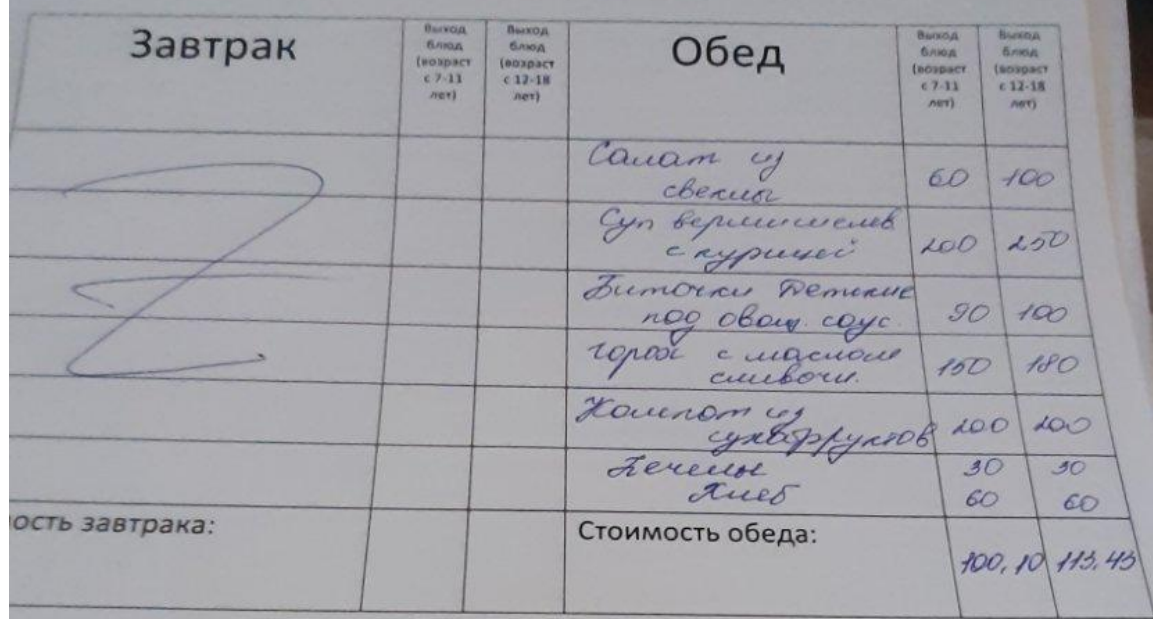 Завтрак
Выход
блюд
(возраст
с 7-11
лет)
Выход
блюд
(возраст
с 12-18
лет)
Обед
Выход
блюд
(возраст
с 7-11
лет)
Выход
блюд
(возраст
с 12-18
лет)
Салат из
свеклы
60 100
Суп вермишелев
с курицей
200 250
Биточки Детские
под овощ. соус.
90 100
горох с маслом
сливочн.
150 180
Компот из
сухофруктов
200 200
Печенье
30 30
Хлеб
60 60
ость завтрака:
Стоимость обеда:
100,10 113,43